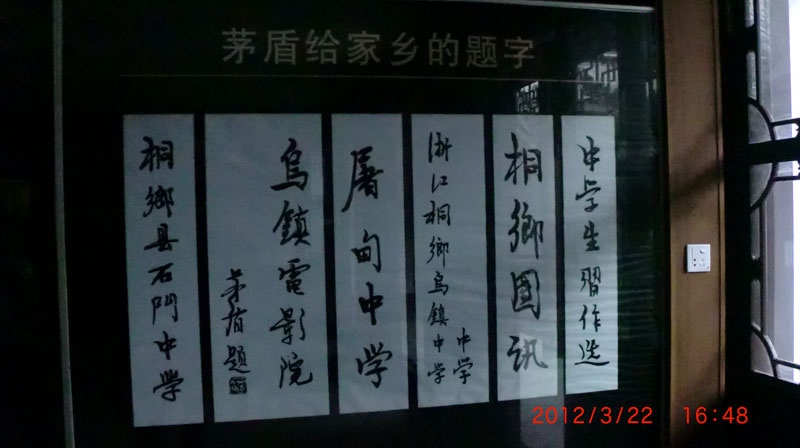 茅盾给家乡的题字
中学生習作选
桐鄉图讯
浙江桐鄉烏鎮中学
中学
屠甸中学
烏鎮電影院
茅盾题
桐鄉县石門中学
2012/3/22 16:48